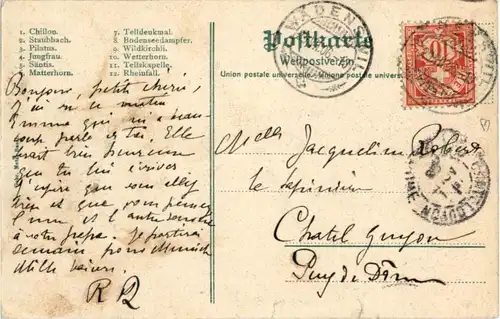 1. Chillon.
2. Staubbach.
3. Pilatus.
4. Jungfrau.
5. Säntis.
6. Matterhorn.
7. Telldenkmal.
8. Bodenseedampfer.
9. Wildkirchli.
10. Wetterhorn.
11. Tellskapelle.
12. Rheinfall.
Postkarte
Weltpostverein.
Union postale universelle.
WÄDENSWIL
10
Bonjour, petite chérie,
J'ai vu ce matin
Emma qui m'a beau-
coup parlé de toi. Elle
serait bien heureuse
que tu lui écrives
J'espère que vous allez
bien et que vous pensez
l'une et l'autre
à votre papa. Je partirai
demain pour Munich
Mille baisers.
R
Melle Jacqueline Robert
le
Chatel Guyon
Puy de Dôme